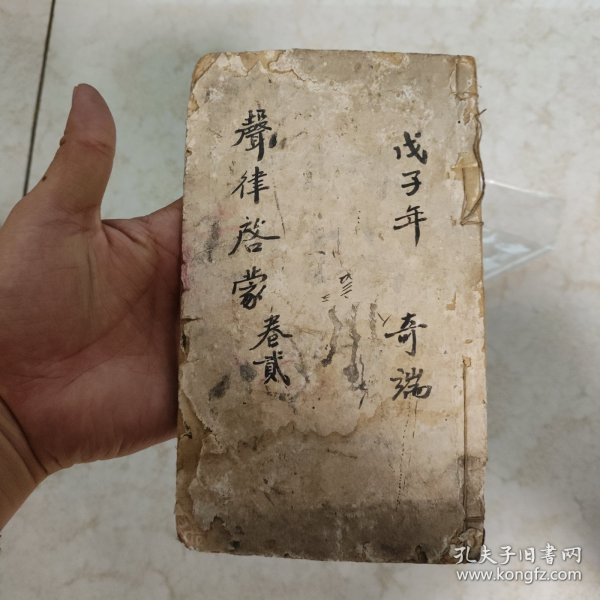 戊子年 奇端
聲律啓蒙 卷貳
孔夫子旧书网
www.kongfz.com